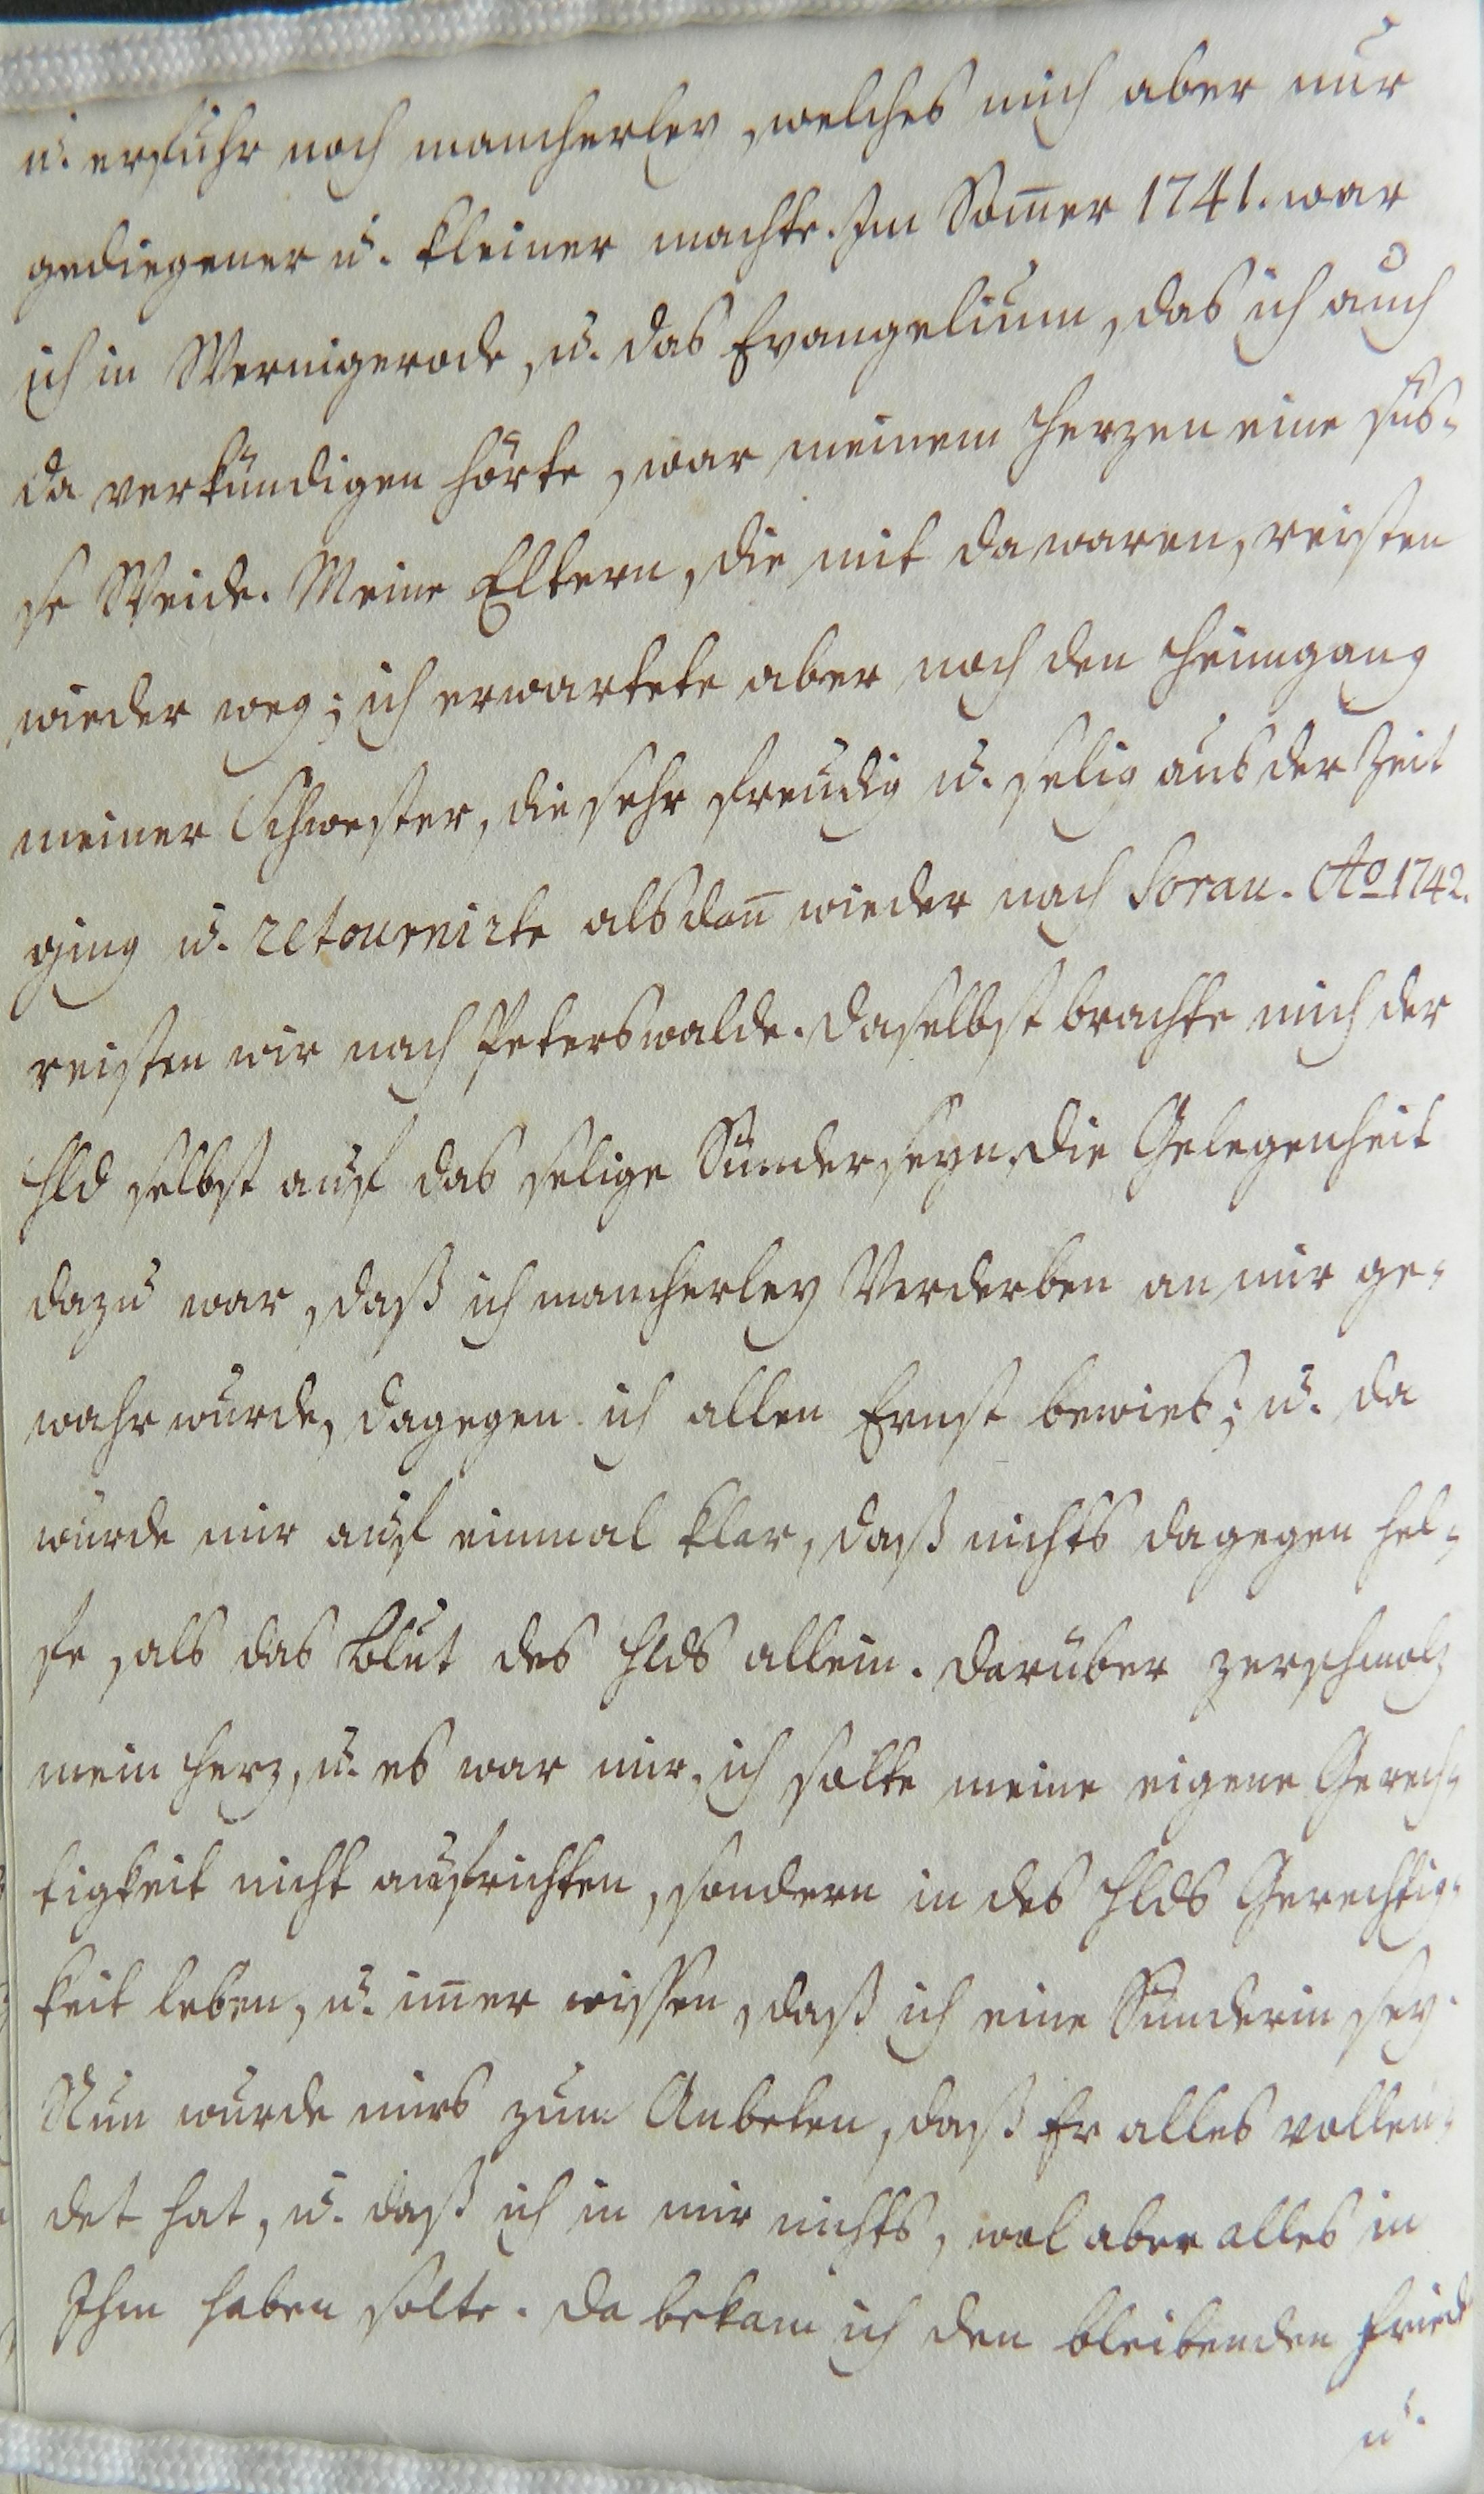 u. erfuhr noch mancherley, welches mich aber nur
gediegener u. kleiner machte. Im Som̅er 1741. war
ich in Wernigerode, u. das Evangelium, das ich auch
da verkündigen hörte, war meinem Herzen eine süs-
se Weide. Meine Eltern, die mit da waren, reisten
wieder weg; ich erwartete aber noch den Heimgang
meiner Schwester, die sehr freudig u. selig aus der Zeit
ging u. retournirte alsdan̅ wieder nach Sorau. Ao 1742.
reisten wir nach Peterswalde. Daselbst brachte mich der
Hld selbst auf das selige Sünderseyn. Die Gelegenheit
dazu war, daß ich mancherley Verderben an mir ge-
wahr wurde, dagegen ich allen Ernst bewies; u. da
wurde mir auf einmal klar, daß nichts dagegen hel-
fe, als das Blut des Hlds allein. Darüber zerschmolz
mein Herz, u. es war mir, ich solte meine eigene Gerech-
tigkeit nicht aufrichten, sondern in des Hlds Gerechtig-
keit leben, u. im̅er wissen, daß ich eine Sünderin sey.
Nun wurde mirs zum Anbeten, daß Er alles vollen-
det hat, u. daß ich in mir nichts, wol aber alles in
Ihm haben solte. Da bekam ich den bleibenden Fried
u.